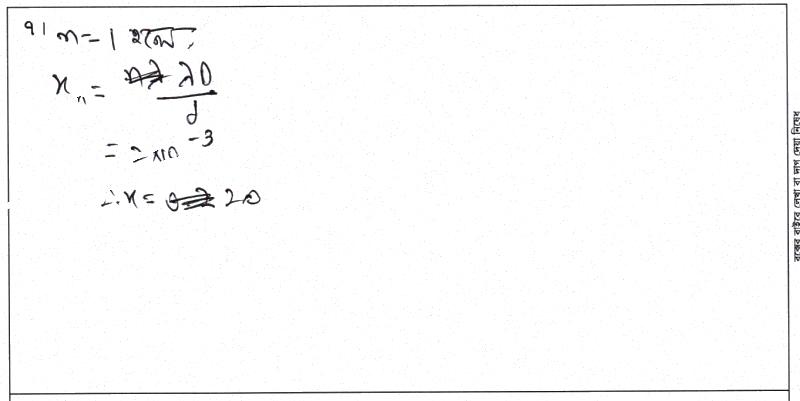 ৭। n = 1 হলে,
x_n = λD / d
= 2 × 10^-3
∴ x =
বক্সের বাইরে লেখা বা দাগ দেয়া নিষেধ